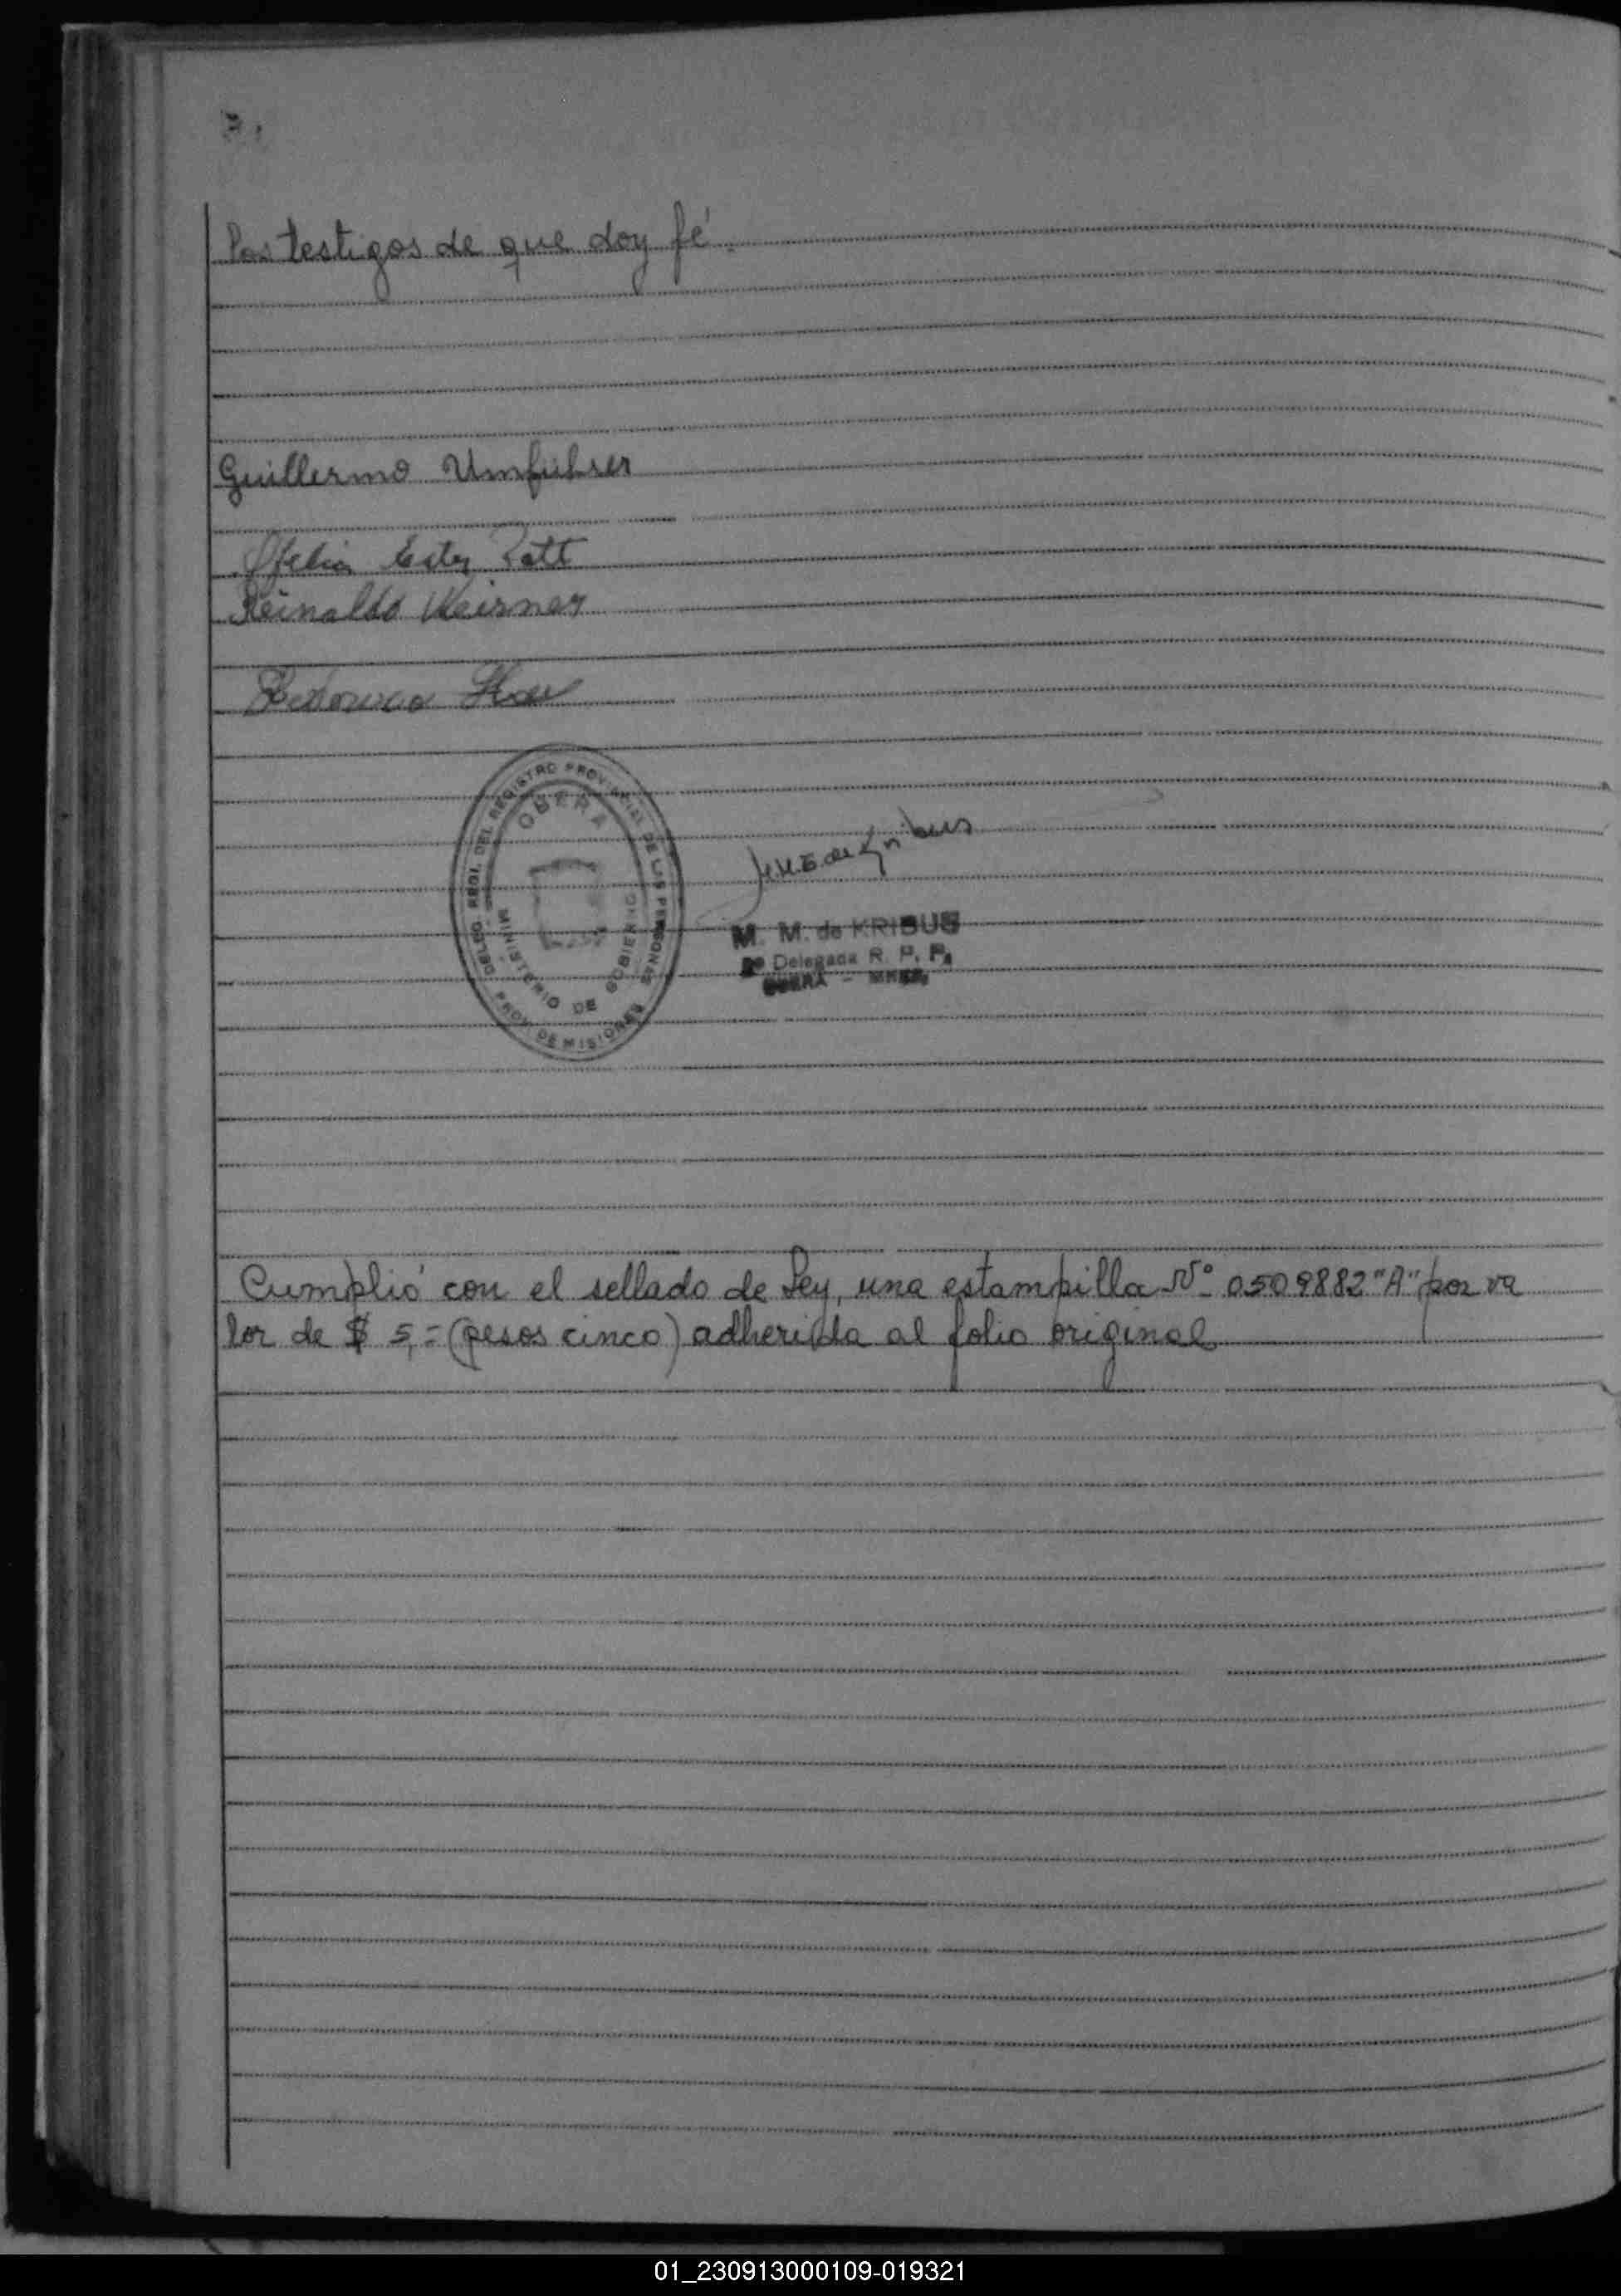 los testigos de que doy fé.
Guillermo Umfuhrer
Ofelia Ester Rott
Reinaldo Weirner
Federico
DELEG. REGI. DEL REGISTRO PROVINCIAL DE LAS PERSONAS
OBERA
MINISTERIO DE GOBIERNO
PROV. DE MISIONES
M. M. de KRIBUS
Delegada R. P. P.
OBERA - MNES.
Cumplió con el sellado de Ley, una estampilla Nº 0509882 "A" por va
lor de $ 5,= (pesos cinco) adherida al folio original
01_230913000109-019321